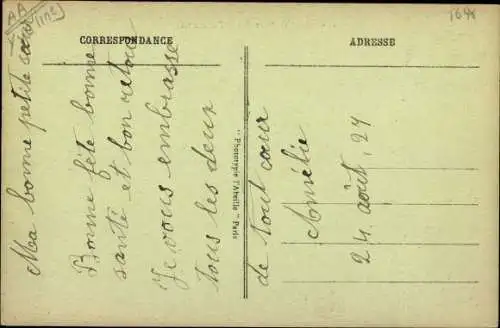 AA
(Inc)
1698
CORRESPONDANCE
ADRESSE
Ma bonne petite sœur
Bonne fête bonne
santé et bon retour
Je vous embrasse
tous les deux
de tout cœur
Amélie
24 août, 27
"Phototypie l'Abeille" Paris